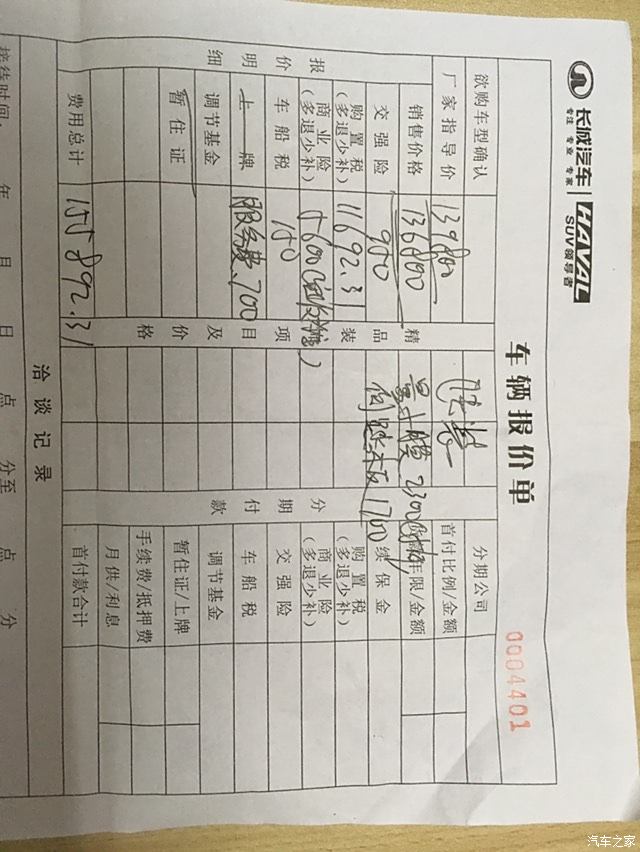 长城汽车 HAVAL
专注 专业 专家 SUV领导者
车辆报价单
0004401
欲购车型确认
分期公司
厂家指导价 139800
首付比例/金额
销售价格 136800
年限/金额
报价明细
交强险 950
精品装
项目及价格
分期付款
续保金
购置税(多退少补) 11692.31
1700
购置税(多退少补)
商业险(多退少补) 5600
商业险(多退少补)
车船税
交强险
上牌 服务费、700
车船税
调节基金
调节基金
暂住证
暂住证/上牌
手续费/抵押费
月供/利息
费用总计 155892.31
首付款合计
洽谈记录
接待时间: 年 月 日 点 分至 点 分
汽车之家